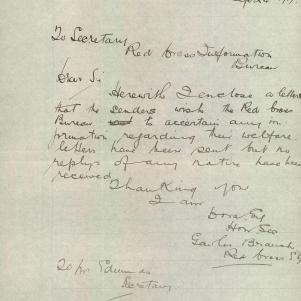 To Secretary
Red Cross Information
Bureau
Dear Sir
Herewith I enclose a letter
that the senders wish the Red Cross
Bureau to ascertain any in
formation regarding their welfare
letters have been sent but no
replys of any nature have been
received
Thanking you
I am
Hon Sec
Branch
Red Cross
To Mr
Secretary